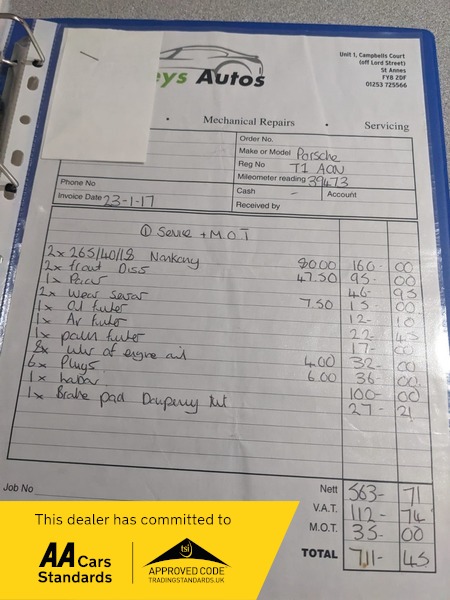 eys Autos
Unit 1, Campbells Court
(off Lord Street)
St Annes
FY8 2DF
01253 725566
• Mechanical Repairs • Servicing
Order No.
Make or Model Porsche
Reg No T1 AON
Mileometer reading 39473
Phone No
Cash - Account
Invoice Date 23-1-17
Received by
① Service + M.O.T
2x 265/40/18 Nankang 80.00 160- 00
2x front Discs 47.50 95- 00
1x 46- 95
2x Wear sensor 7.50 15- 00
1x Oil filter 12- 10
1x Air filter 22- 43
1x pollen filter 17- 00
8x litr of engine oil 4.00 32- 00
6x Plugs 6.00 36- 00
1x labour 100- 00
1x Brake pad Kit 27- 21
Job No
Nett 563- 71
V.A.T. 112- 74
M.O.T. 35- 00
TOTAL 711- 45
This dealer has committed to
AA Cars
Standards
tsi
APPROVED CODE
TRADINGSTANDARDS.UK